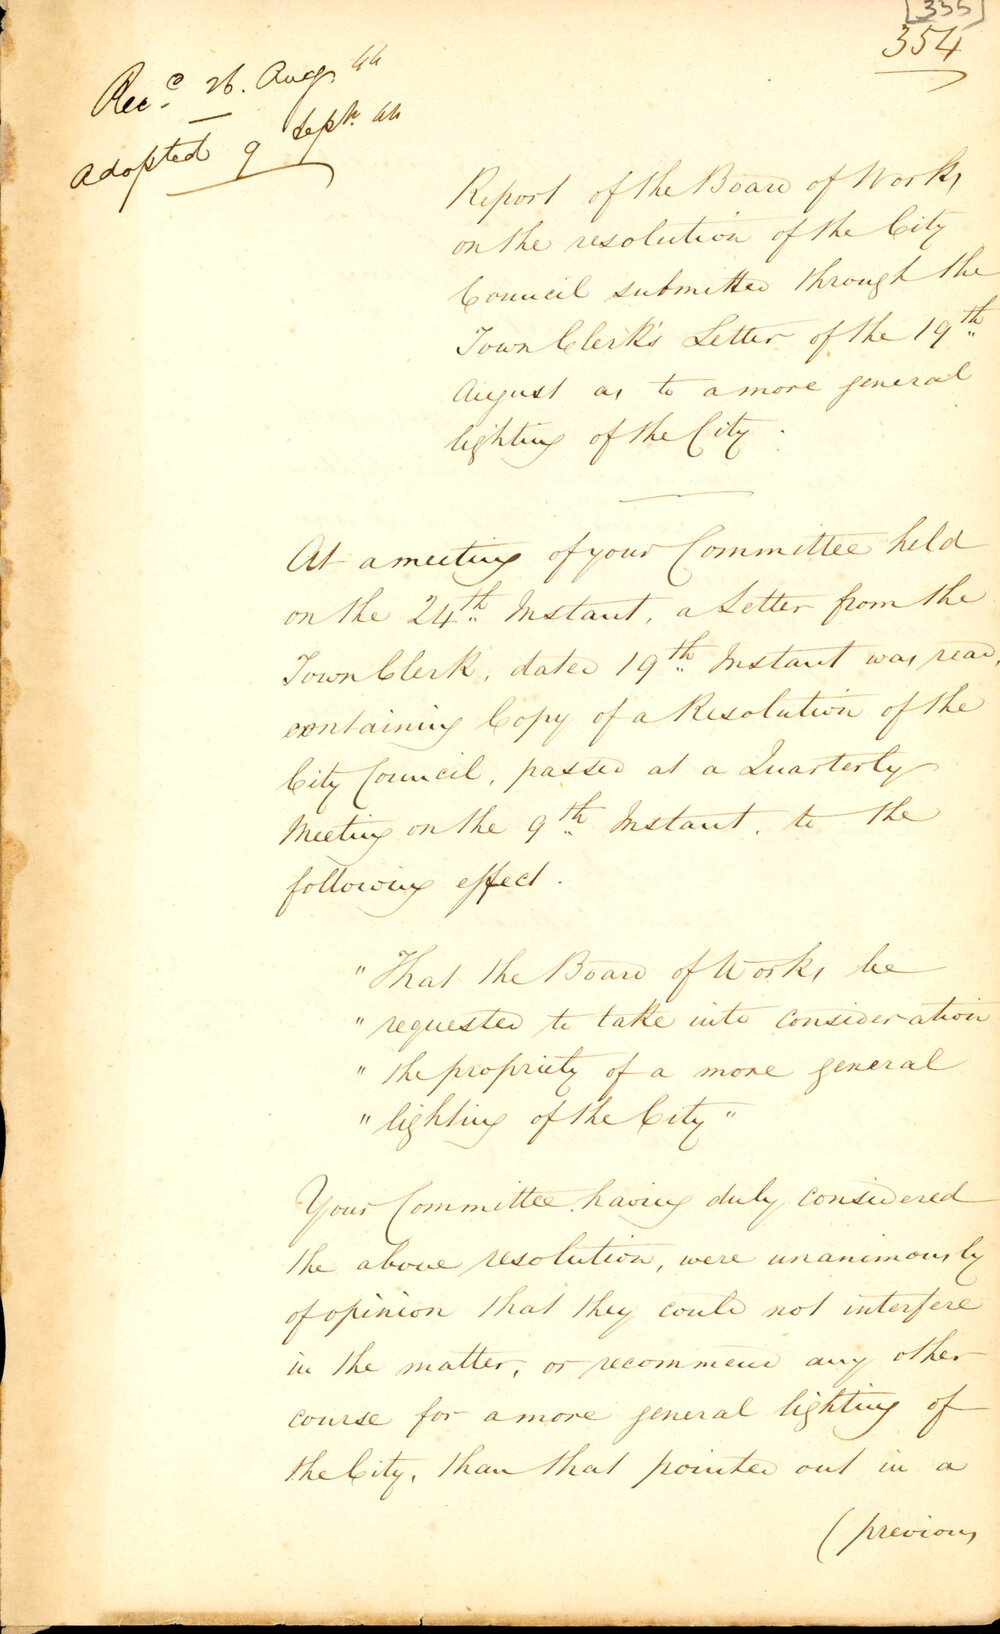 [335]
354
Rec.d 26. Aug. 44
Adopted 9 Sept. 44
Report of the Board of Works
on the resolution of the City
Council submitted through the
Town Clerk's Letter of the 19th
August as to a more general
lighting of the City.
At a meeting of your Committee held
on the 24th Instant, a Letter from the
Town Clerk, dated 19th Instant was read,
containing Copy of a Resolution of the
City Council, passed at a Quarterly
Meeting on the 9th Instant, to the
following effect.
"That the Board of Works be
"requested to take into consideration
"the propriety of a more general
"lighting of the City"
Your Committee having duly considered
the above resolution, were unanimously
of opinion that they could not interfere
in the matter, or recommend any other
course for a more general lighting of
the City, than that pointed out in a
(previous